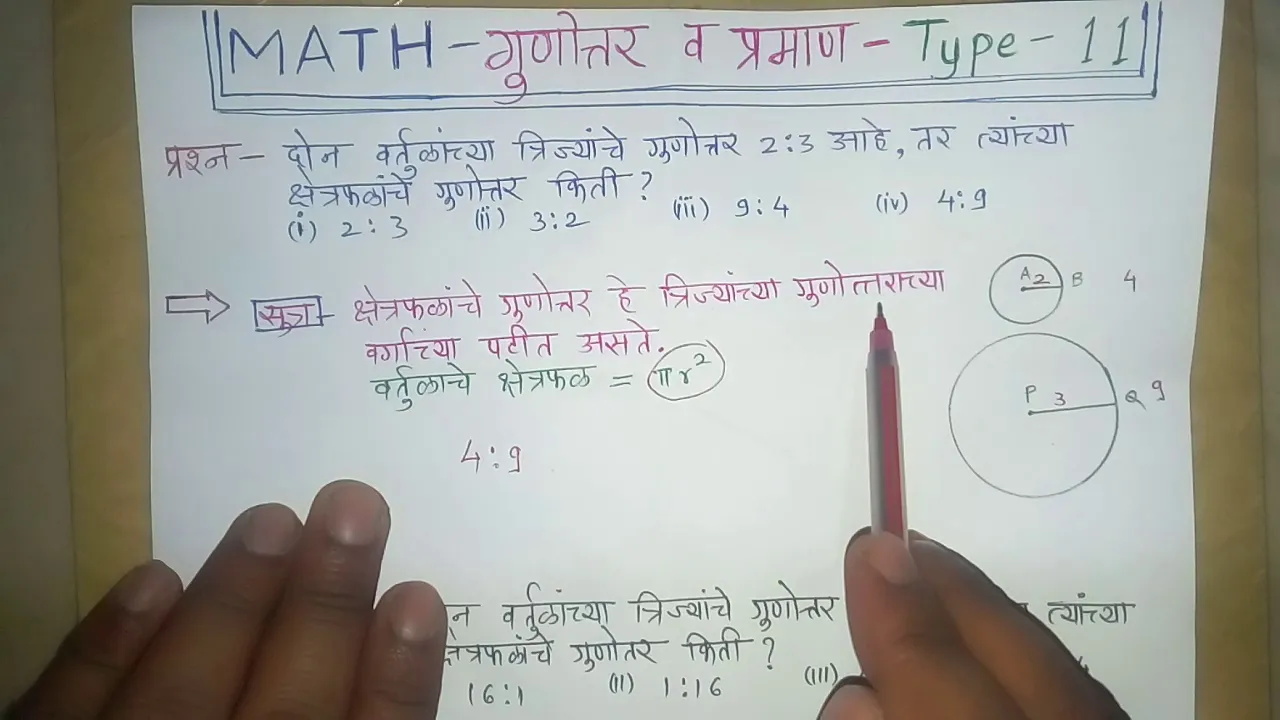 MATH - गुणोत्तर व प्रमाण - Type - 11
प्रश्न - दोन वर्तुळांच्या त्रिज्यांचे गुणोत्तर 2:3 आहे, तर त्यांच्या
क्षेत्रफळांचे गुणोत्तर किती ?
(i) 2:3 (ii) 3:2 (iii) 9:4 (iv) 4:9
सूत्र - क्षेत्रफळांचे गुणोत्तर हे त्रिज्यांच्या गुणोत्तराच्या
वर्गाच्या पटीत असते.
वर्तुळाचे क्षेत्रफळ = πr²
4:9
A 2 B 4
P 3 Q 9
वर्तुळांच्या त्रिज्यांचे गुणोत्तर त्यांच्या
क्षेत्रफळांचे गुणोतर किती ?
16:1 (II) 1:16 (III)